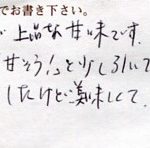 でお書き下さい。
上品な甘味です。
甘そう!と少し引いて
したけど美味しくて、